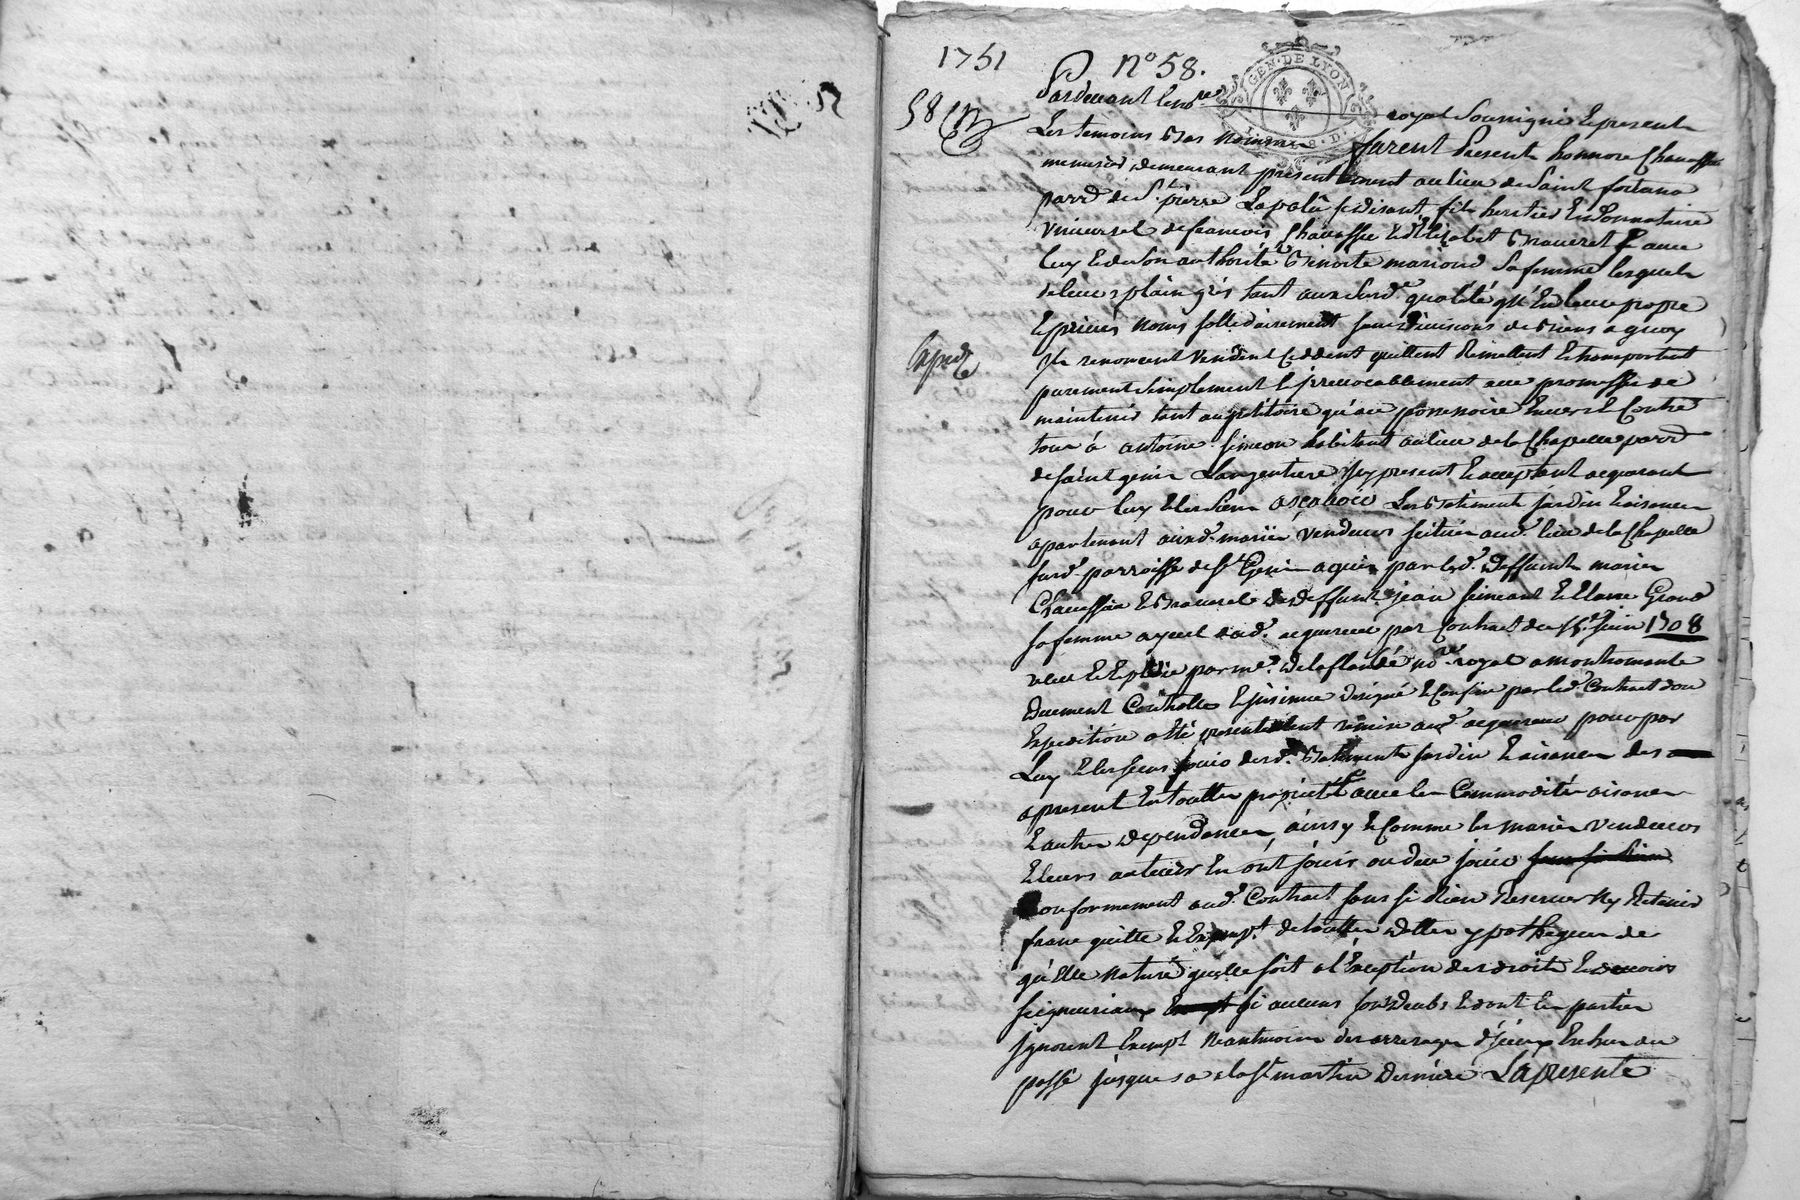 1751
N° 58.
58
GEN. DE LYON
Pardevant le no.re royal Soussigné Et presents
Les temoins Bas Nommes furent Presents honnore Chauassieu
demeurant presentement au lieu de Saint fortuna
parr.e de S.t pierre Lapalü se disant fils heritier Et Donnataire
Vniversel de francois Chauassieu Et Elizabet Braueret Et auec
luy Et de Son authorité Benoite mariond Sa femme lesquels
de leurs plain grés tant aux Susd.e qualité qu'En leurs propre
Et priués Noms sollidairement sans diuisions de Biens a quoy
Ils renoncent Vendent Ceddent quittent Remettent Et transportent
purement Simplement Et jrreuocablement auec promesse de
maintenir tant au petitoire qu'au possessoire Enuers Et Contre
tous à antoine Simeon habitant au lieu de la Chapelle parr.e
Expedié
de Saint genis Largentiere Icy present Et acceptant acquerant
pour luy Et les siens ascauoir Les Batiment jardin Et aisances
apartenant auxd. mariés Vendeurs scitués aud. lieu de la Chapelle
susd. parroisse de S.t Genis aquis par lesd. deffunts mariés
Chauassieu Et Braueret de deffunt jean Simeont Et Clauve Grand
sa femme ayeul dud. acquereur par Contract du 15.e Juin 1708
receu Et Expedié par m.e Delaflandé no.re royal a montromant
Duement Controllé Et jnsinué designé Et Confiné par led. Contract dont
Expedition a Eté presentement remise aud. acquereur pour par
Luy Et les siens jouir desd. Batiments jardin Et aisances des
a present En toutte propriété auec les Commodités aisances
Et autres dependances, ainsy Et Comme les mariés Vendeurs
Et leurs auteurs En ont joüir ou deu joüir
Conformement aud. Contract sans si Rien Reseruer Ny Retenir
franc quitte Et Exempt de touttes dettes ypotheques de
qu'Elle Nature quelle soit a l'Exeption des droits Et deuoirs
seigneuriaux si aucuns sont deubs Et dont Les parties
Ignorent Exempt Neantmoins des arrerages d'jceux Echus du
passé jusques a la S.t martin derniere La presente